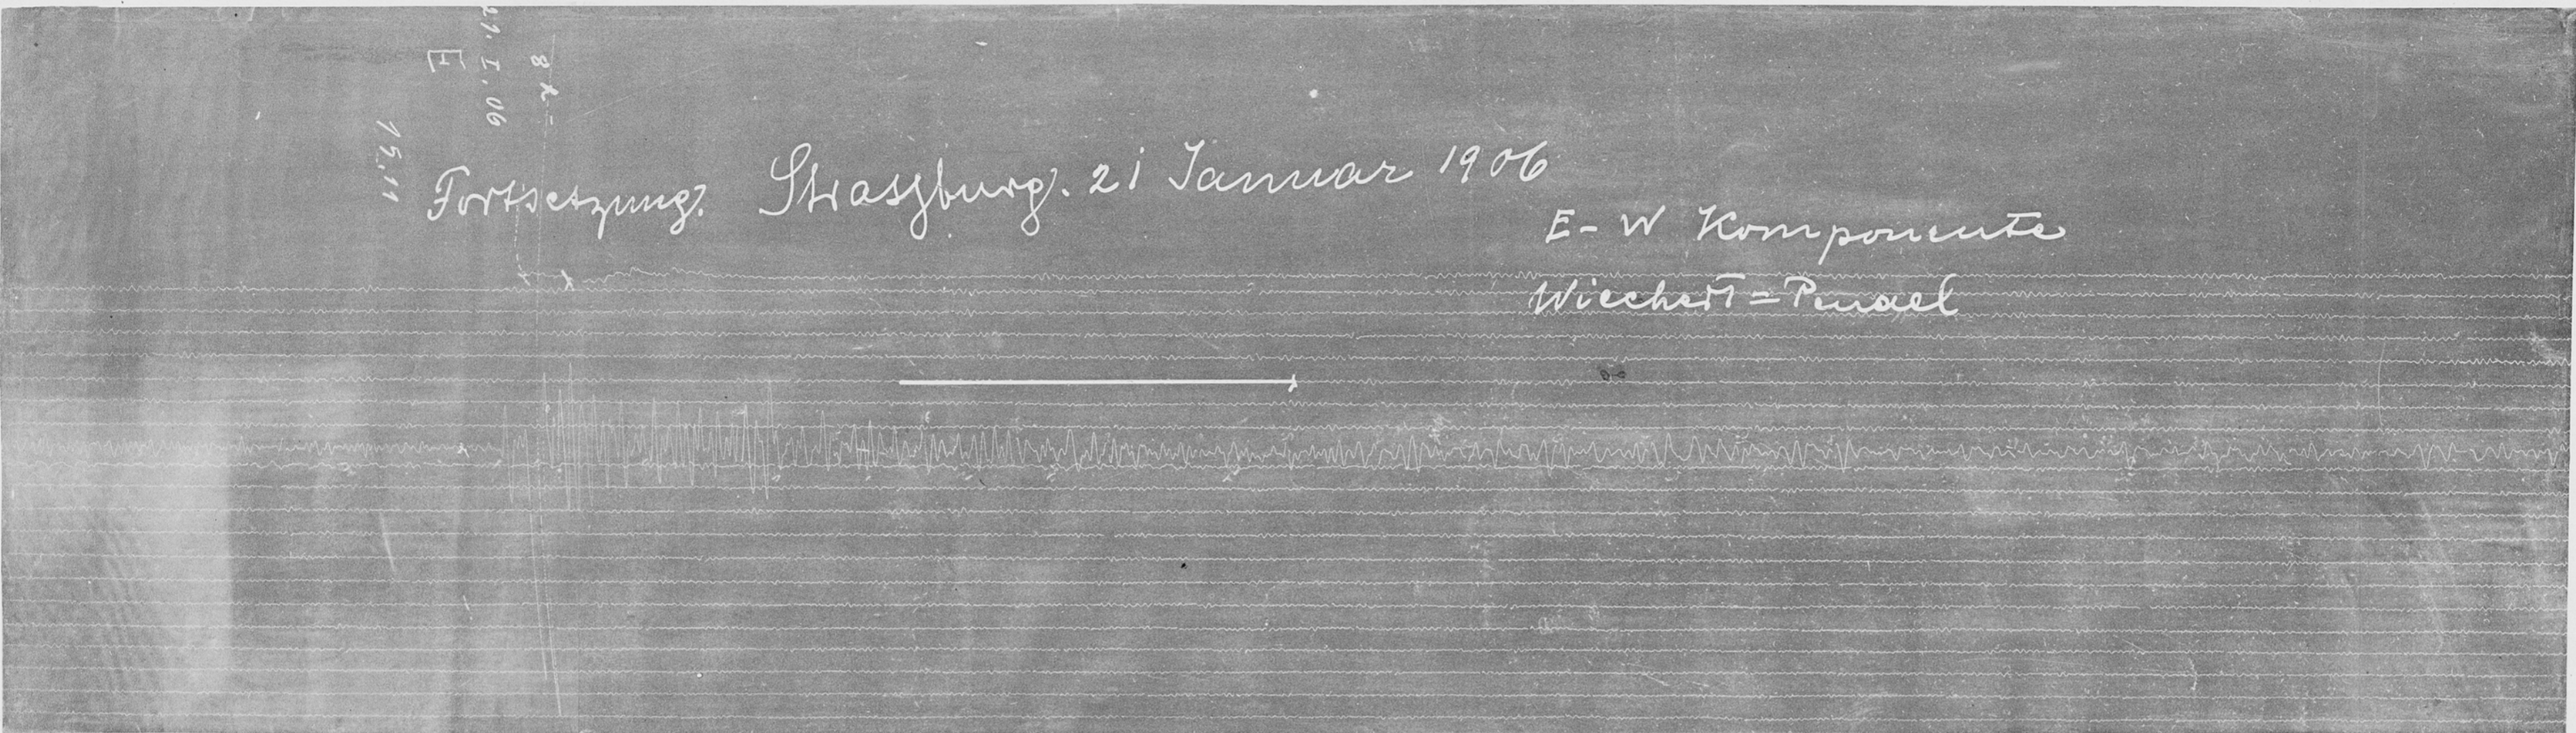 21. I. 06
E
8 h -
15.11
Fortsetzung. Straszburg. 21 Januar 1906
E-W Komponente
Wiechert=Pendel